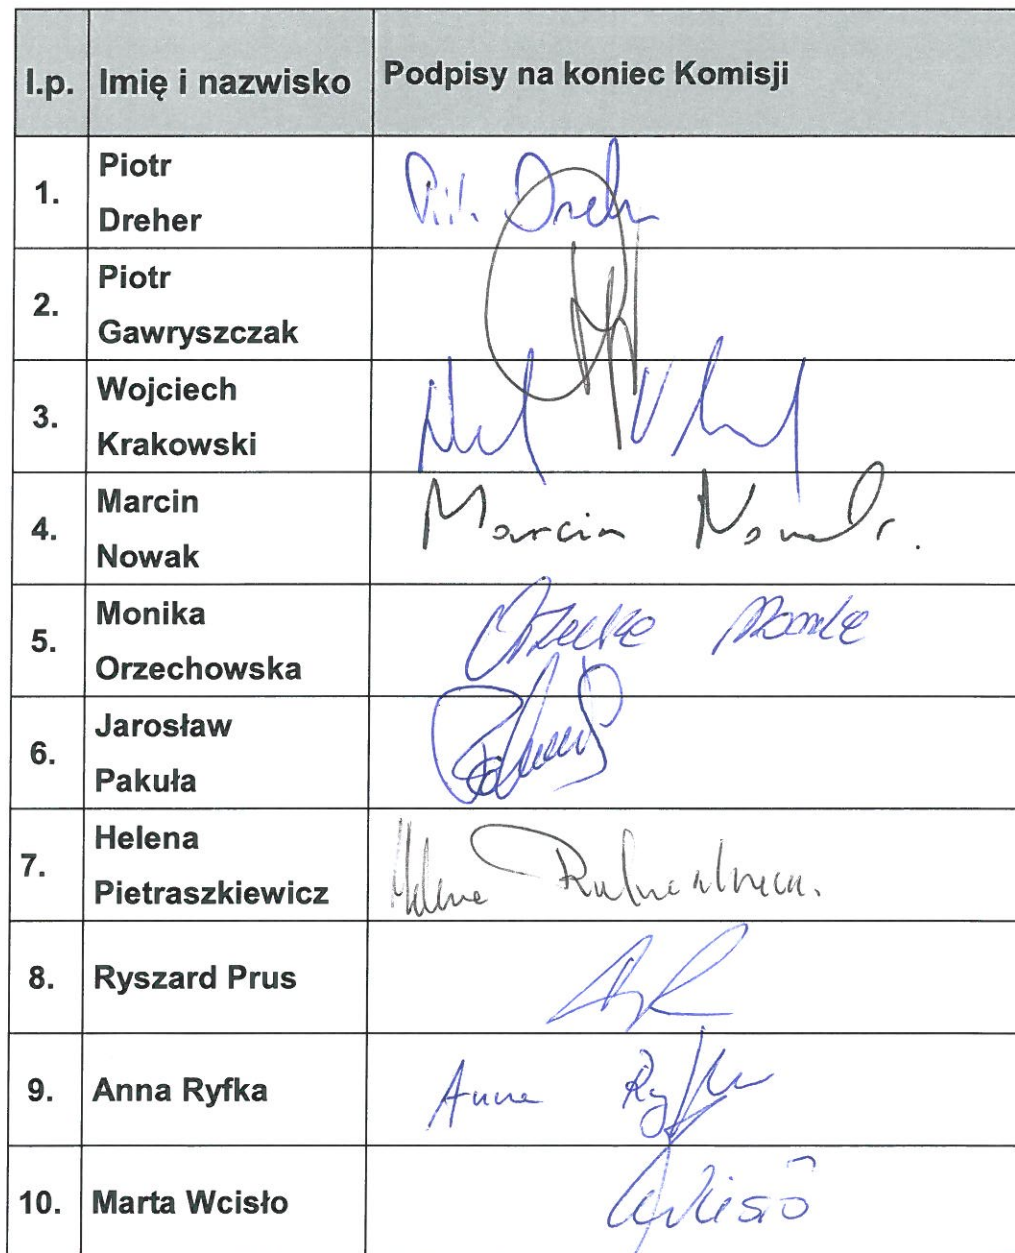 l.p. Imię i nazwisko Podpisy na koniec Komisji
1. Piotr
Dreher
2. Piotr
Gawryszczak
3. Wojciech
Krakowski
4. Marcin
Nowak Marcin Nowak
5. Monika
Orzechowska
6. Jarosław
Pakuła
7. Helena
Pietraszkiewicz Helena
8. Ryszard Prus
9. Anna Ryfka Anna Ryfka
10. Marta Wcisło